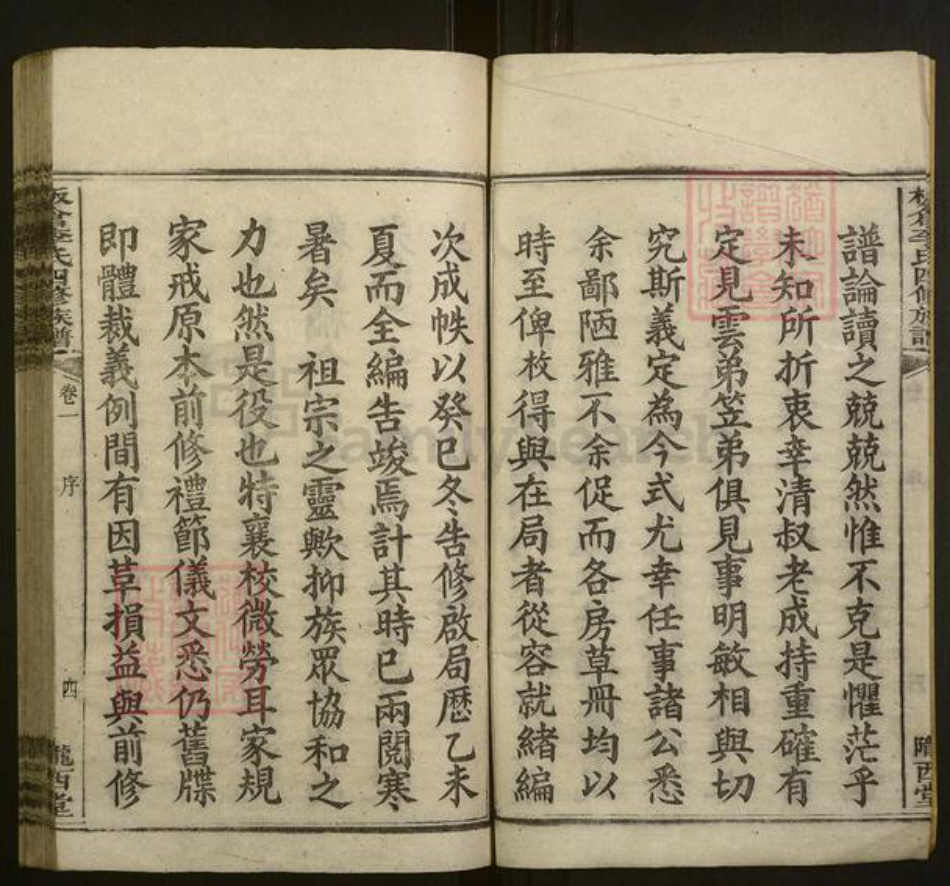 譜論讀之兢兢然惟不克是懼茫乎
未知所折衷幸清叔老成持重確有
定見雲弟笠弟俱見事明敏相與切
究斯義定為今式尤幸任事諸公悉
余鄙陋雅不余促而各房草冊均以
時至俾枚得與在局者從容就緒編
次成帙以癸巳冬告修啟局歷乙未
夏而全編告竣焉計其時已兩閱寒
暑矣　祖宗之靈歟抑族眾協和之
力也然是役也特襄校微勞耳家規
家戒原本前修禮節儀文悉仍舊牒
即體裁義例間有因革損益與前修
李氏四修族譜
卷一
序
四
隴西堂
FamilySearch